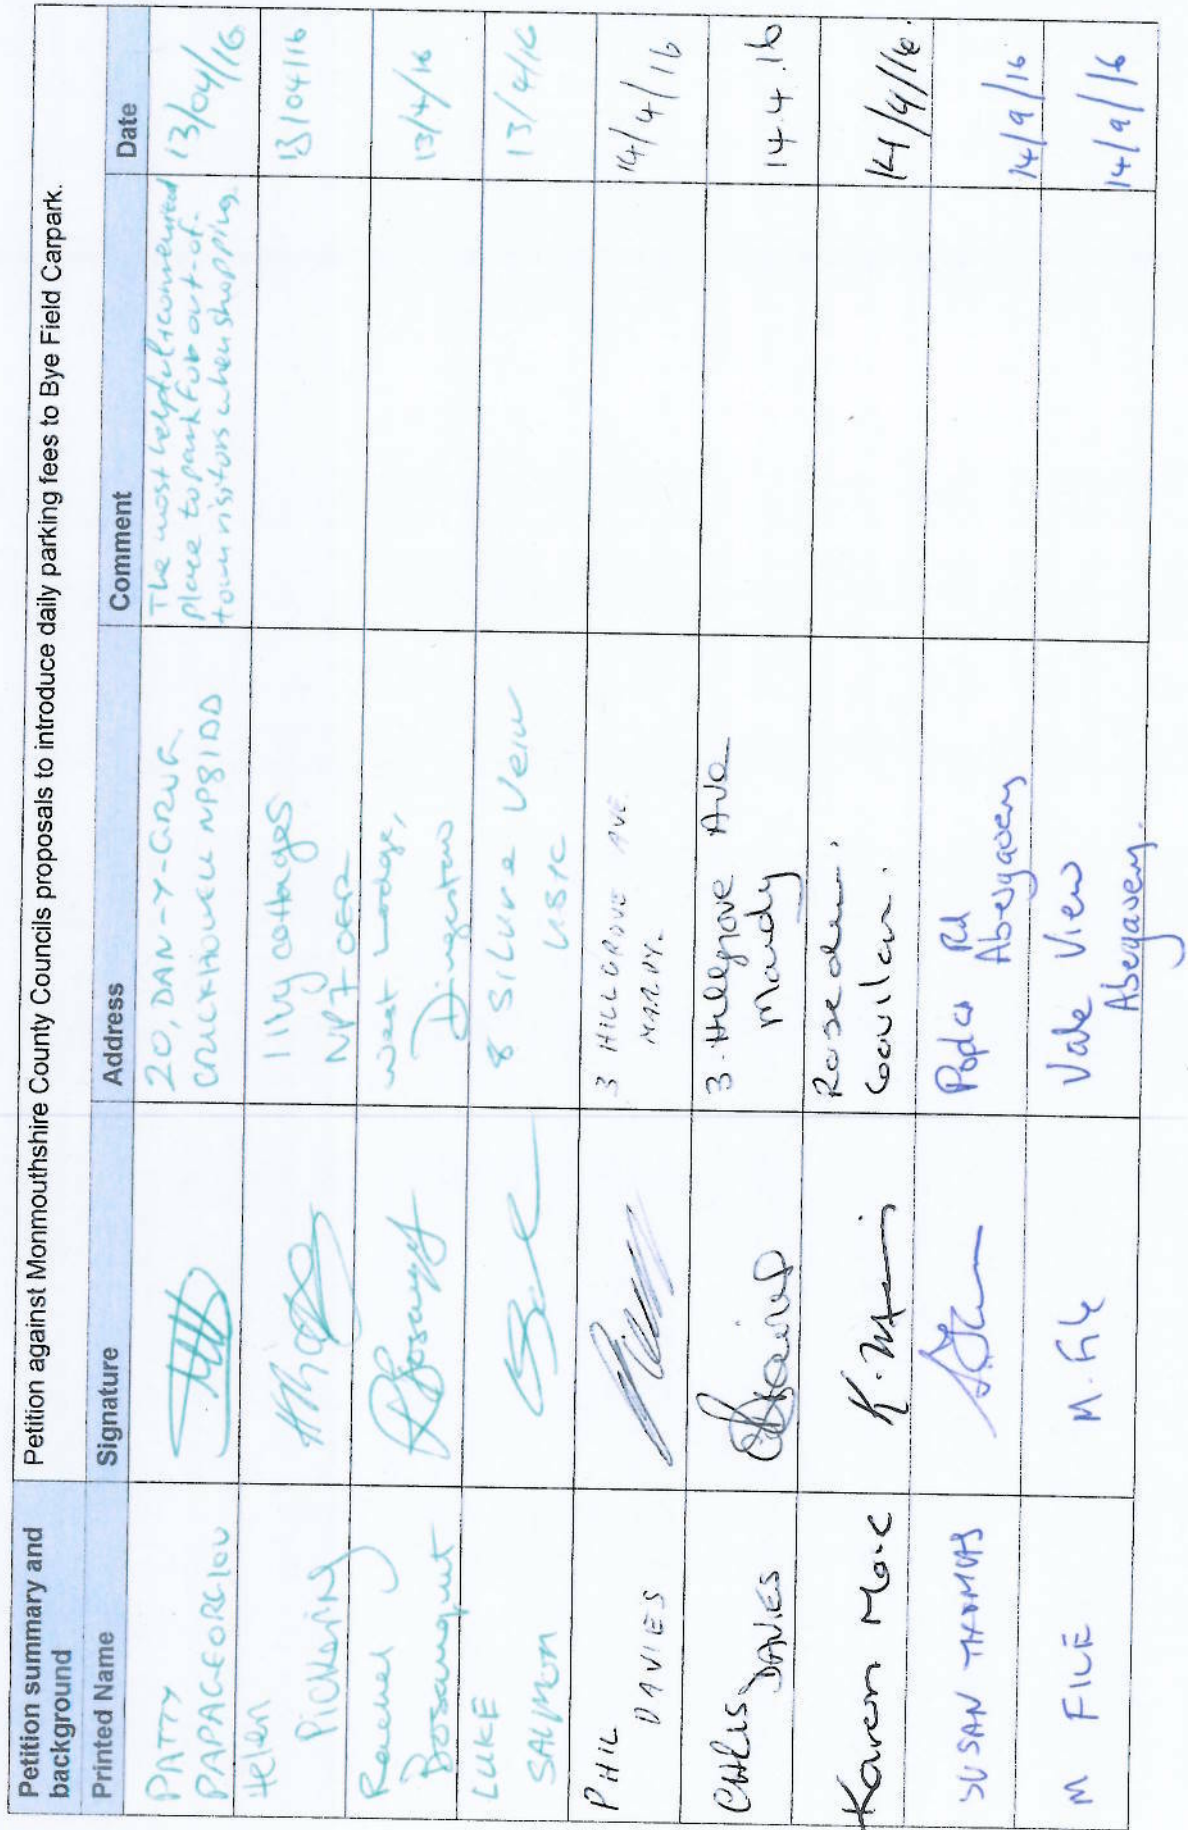 Petition summary and background
Petition against Monmouthshire County Councils proposals to introduce daily parking fees to Bye Field Carpark.
Printed Name Signature Address Comment Date
PATTY
PAPAGEORGIOU
20, DAN-Y-GRUG
CRICKHOWELL NP81DD
The most helpful + convenient
place to park for out-of-
town visitors when shopping.
13/04/16
Helen
Pickering
1 Ivy cottages
NP7 0ER
13/04/16
Rachel
Bosanquet
West Lodge,
Dingestow
13/4/16
LUKE
SALMON
8 SILURE Veiw
USK
13/4/16
PHIL
DAVIES
3 HILLGROVE AVE
MARDY.
14/4/16
CHRIS
DAVIES
3 Hillgrove Ave
Mardy
14.4.16
Karen
14/4/16.
SUSAN THOMAS
Poplar Rd
Abergaveny
14/9/16
M FILE
M. File
Vale View
Abergaveny.
14/9/16